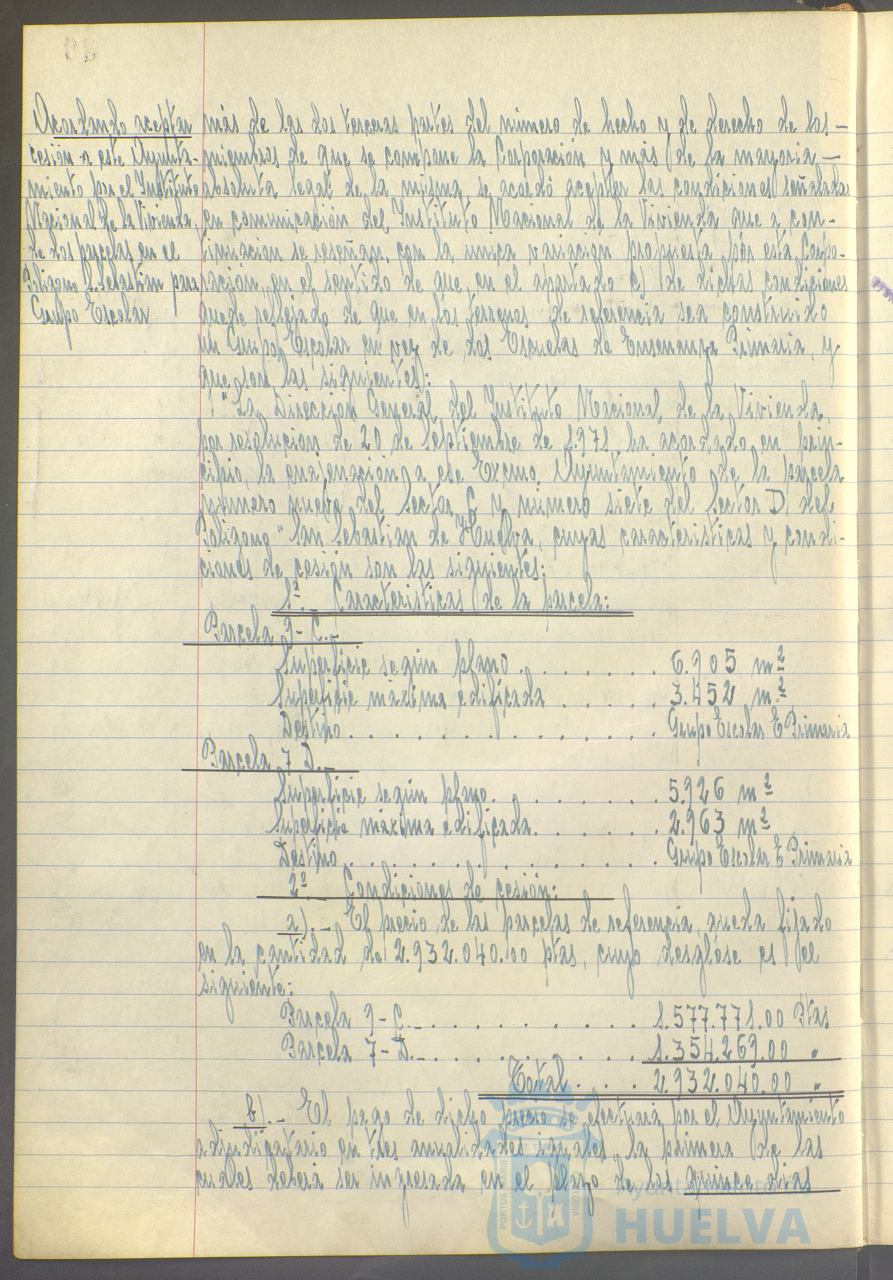 Acordando aceptar
cesión a este Ayunta-
miento por el Instituto
Nacional de la Vivienda,
de dos parcelas en el
Poligono S. Sebastian para
Grupo Escolar
más de las dos terceras partes del número de hecho y de derecho de los —
miembros de que se compone la Corporación y más de la mayoria —
absoluta legal de la misma, se acordó aceptar las condiciones señaladas
en comunicación del Instituto Nacional de la Vivienda que a con-
tinuación se reseñan, con la unica variación propuesta por esta Corpo-
ración, en el sentido de que, en el apartado c) de dichas condiciones
quede reflejado de que en los terrenos de referencia sea construido
un Grupo Escolar en vez de dos Escuelas de Enseñanza Primaria, y
que son las siguientes:
"La Dirección General del Instituto Nacional de la Vivienda,
por resolución de 20 de Septiembre de 1.971, ha acordado en prin-
cipio, la enajenación a ese Excmo. Ayuntamiento de la parcela
número nueve del Sector C y número siete del Sector D del
Poligono "San Sebastian de Huelva, cuyas caracteristicas y condi-
ciones de cesión son las siguientes:
1ª.- Caracteristicas de la parcela:
Parcela 9-C.-
Superficie según plano . . . . . . . 6.905 m²
Superficie máxima edificada . . . . . 3.452 m²
Destino . . . . . . . . . . . . . Grupo Escolar E Primaria
Parcela 7 D.-
Superficie según plano . . . . . . . 5.926 m²
Superficie máxima edificada . . . . . 2.963 m²
Destino . . . . . . . . . . . . . Grupo Escolar E Primaria
2ª Condiciones de cesión:
a).- El precio de las parcelas de referencia, queda fijado
en la cantidad de 2.932.040.00 ptas, cuyo desglose es el
siguiente:
Parcela 9-C.- . . . . . . . . . . 1.577.771.00 Ptas
Parcela 7-D.- . . . . . . . . . . 1.354.269.00 "
Total . . . . 2.932.040.00 "
b).- El pago de dicho precio se efectuará por el Ayuntamiento
adjudicatario en tres anualidades iguales, la primera de las
cuales deberá ser ingresada en el plazo de los quince dias
Ayuntamiento de
HUELVA